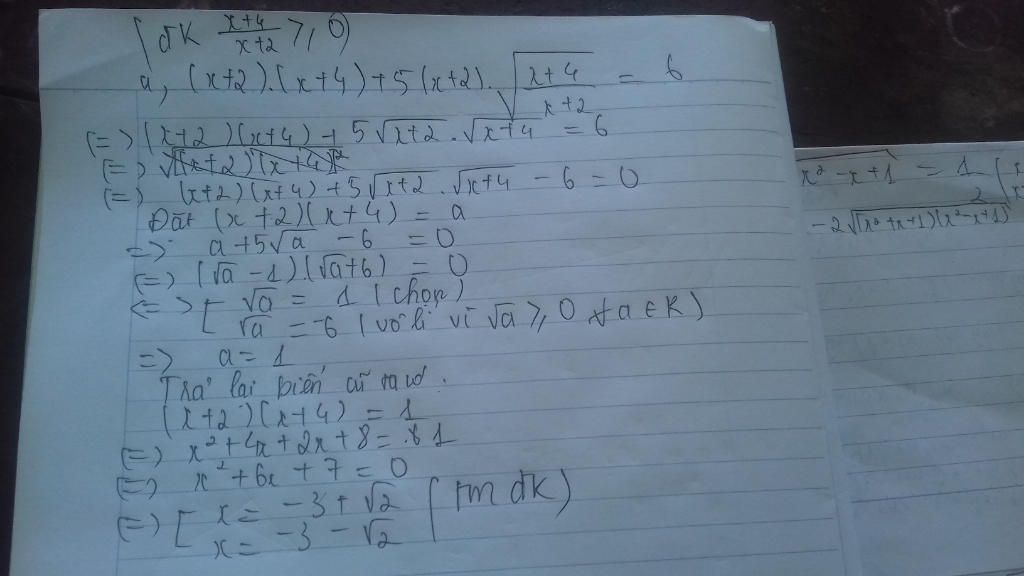 (đK \frac{x+4}{x+2} ≥ 0)
a, (x+2).(x+4)+5(x+2).\sqrt{\frac{x+4}{x+2}} = 6
(=) (x+2)(x+4)+5\sqrt{x+2}.\sqrt{x+4} = 6
(=) \sqrt{[(x+2)(x+4)]^2}
(=) (x+2)(x+4)+5\sqrt{x+2}.\sqrt{x+4} - 6 = 0
Đặt (x+2)(x+4) = a
=> a+5\sqrt{a} - 6 = 0
(=) (\sqrt{a} - 1).(\sqrt{a}+6) = 0
<=> [ \sqrt{a} = 1 (chọn)
\sqrt{a} = -6 (vô lí vì \sqrt{a} ≥ 0 ∀a ∈ R)
=> a = 1
Trả lại biến
(x+2)(x+4) = 1
(=) x^2+4x+2x+8 = 1
(=) x^2+6x+7 = 0
(=) [ x = -3+\sqrt{2} (tm đk)
x = -3-\sqrt{2}
x^2-x+1 = 1
2
-2\sqrt{(x^2+x+1)(x^2-x+1)}